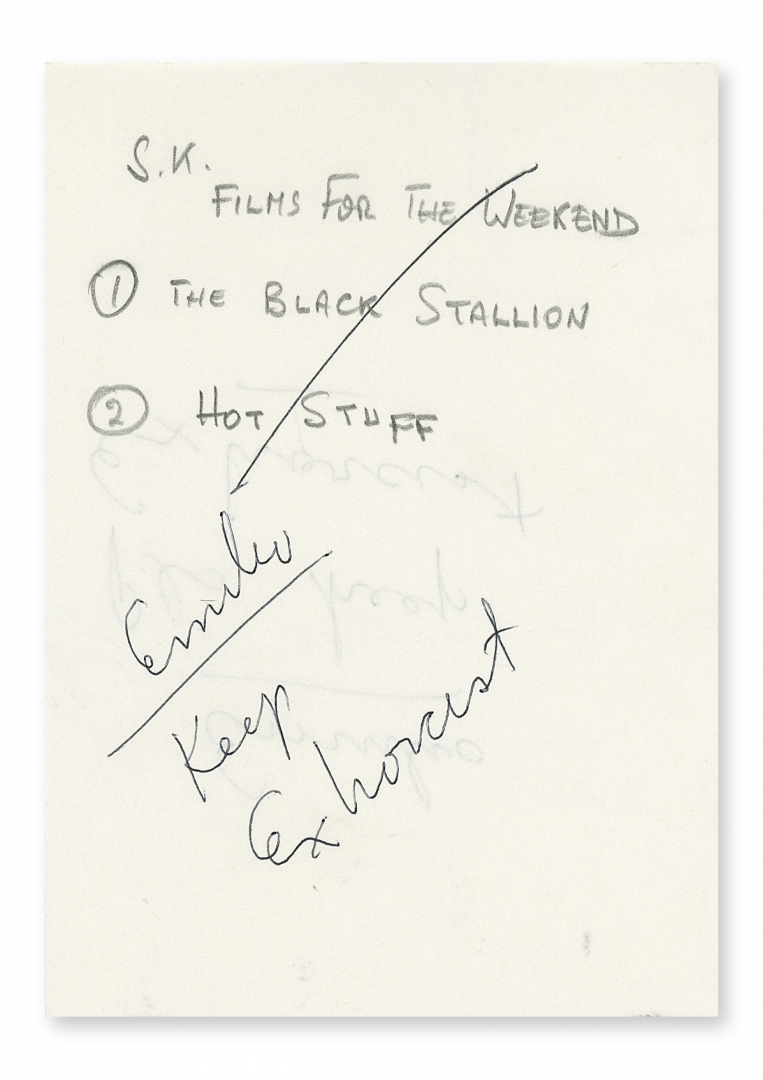 S.K.
FILMS FOR THE WEEKEND
① THE BLACK STALLION
② HOT STUFF
Emilio
Keep
Exhorcist